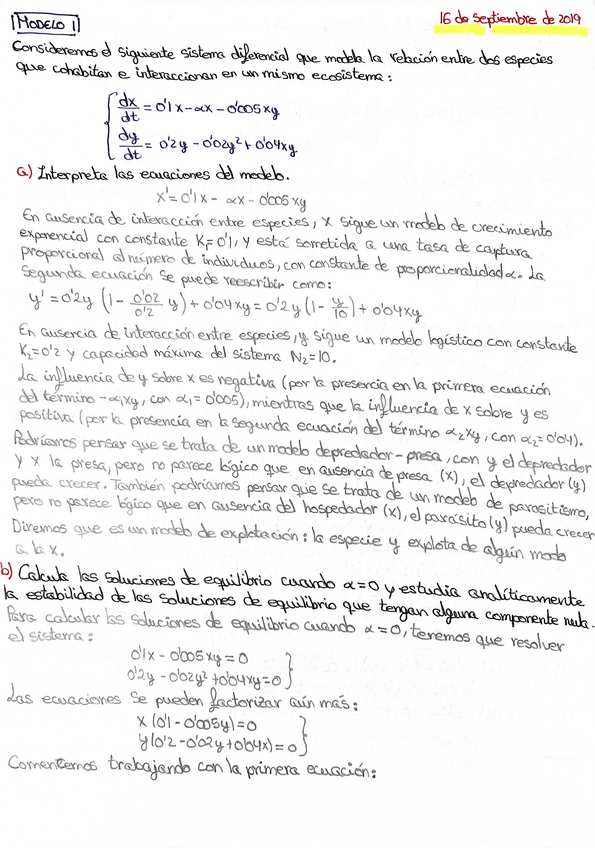 MODELO 1
16 de septiembre de 2019
Consideremos el siguiente sistema diferencial que modela la relación entre dos especies
que cohabitan e interaccionan en un mismo ecosistema:
dx/dt = 0'1x - αx - 0'005xy
dy/dt = 0'2y - 0'02y² + 0'04xy
a) Interpreta las ecuaciones del modelo.
x' = 0'1x - αx - 0'005xy
En ausencia de interacción entre especies, x sigue un modelo de crecimiento
exponencial con constante K₁=0'1, y está sometida a una tasa de captura
proporcional al número de individuos, con constante de proporcionalidad α. La
segunda ecuación se puede reescribir como:
y' = 0'2y (1 - 0'02/0'2 y) + 0'04xy = 0'2y (1 - y/10) + 0'04xy
En ausencia de interacción entre especies, y sigue un modelo logístico con constante
K₂=0'2 y capacidad máxima del sistema N₂=10.
La influencia de y sobre x es negativa (por la presencia en la primera ecuación
del término -α₁xy, con α₁=0'005), mientras que la influencia de x sobre y es
positiva (por la presencia en la segunda ecuación del término α₂xy, con α₂=0'04).
Podríamos pensar que se trata de un modelo depredador-presa, con y el depredador
y x la presa, pero no parece lógico que en ausencia de presa (x), el depredador (y)
pueda crecer. También podríamos pensar que se trata de un modelo de parasitismo,
pero no parece lógico que en ausencia del hospedador (x), el parásito (y) pueda crecer
Diremos que es un modelo de explotación: la especie y explota de algún modo
a la x.
b) Calcula las soluciones de equilibrio cuando α=0 y estudia analíticamente
la estabilidad de las soluciones de equilibrio que tengan alguna componente nula.
Para calcular las soluciones de equilibrio cuando α=0, tenemos que resolver
el sistema:
0'1x - 0'005xy = 0
0'2y - 0'02y² + 0'04xy = 0
Las ecuaciones se pueden factorizar aún más:
x (0'1 - 0'005y) = 0
y (0'2 - 0'02y + 0'04x) = 0
Comencemos trabajando con la primera ecuación: